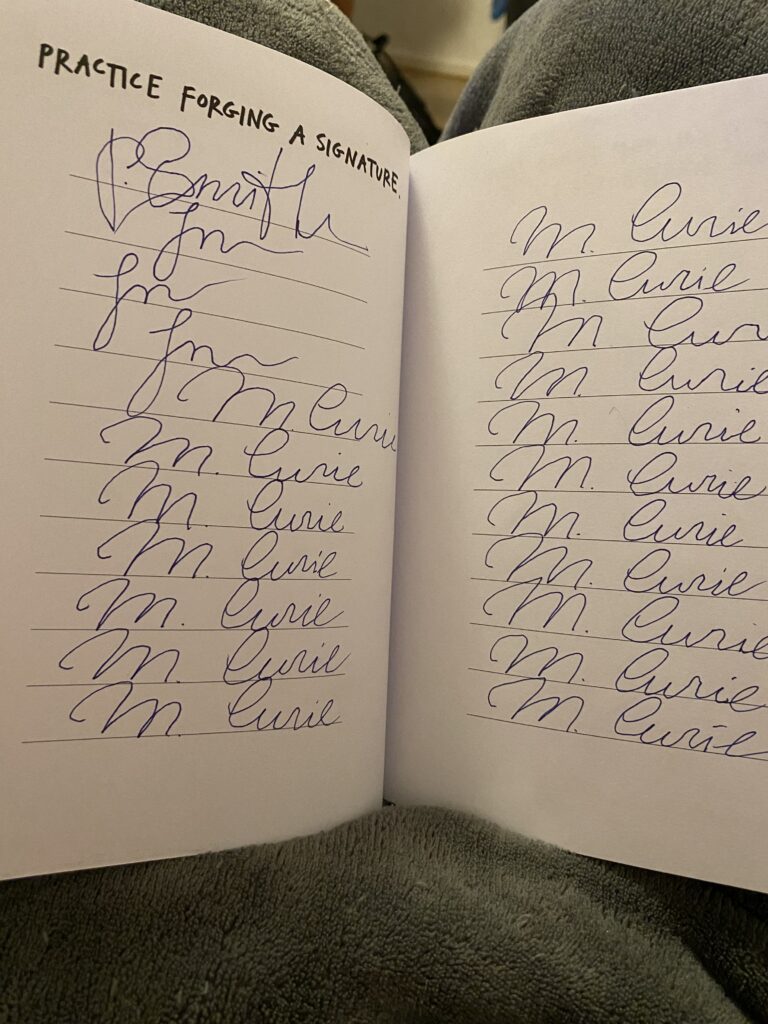 PRACTICE FORGING A SIGNATURE.
P. Smith
M. Curie
M. Curie
M. Curie
M. Curie
M. Curie
M. Curie
M. Curie
M. Curie
M. Curie
M. Cur
M. Curie
M. Curie
M. Curie
M. Curie
M. Curie
M. Curie
M. Curie
M. Curie